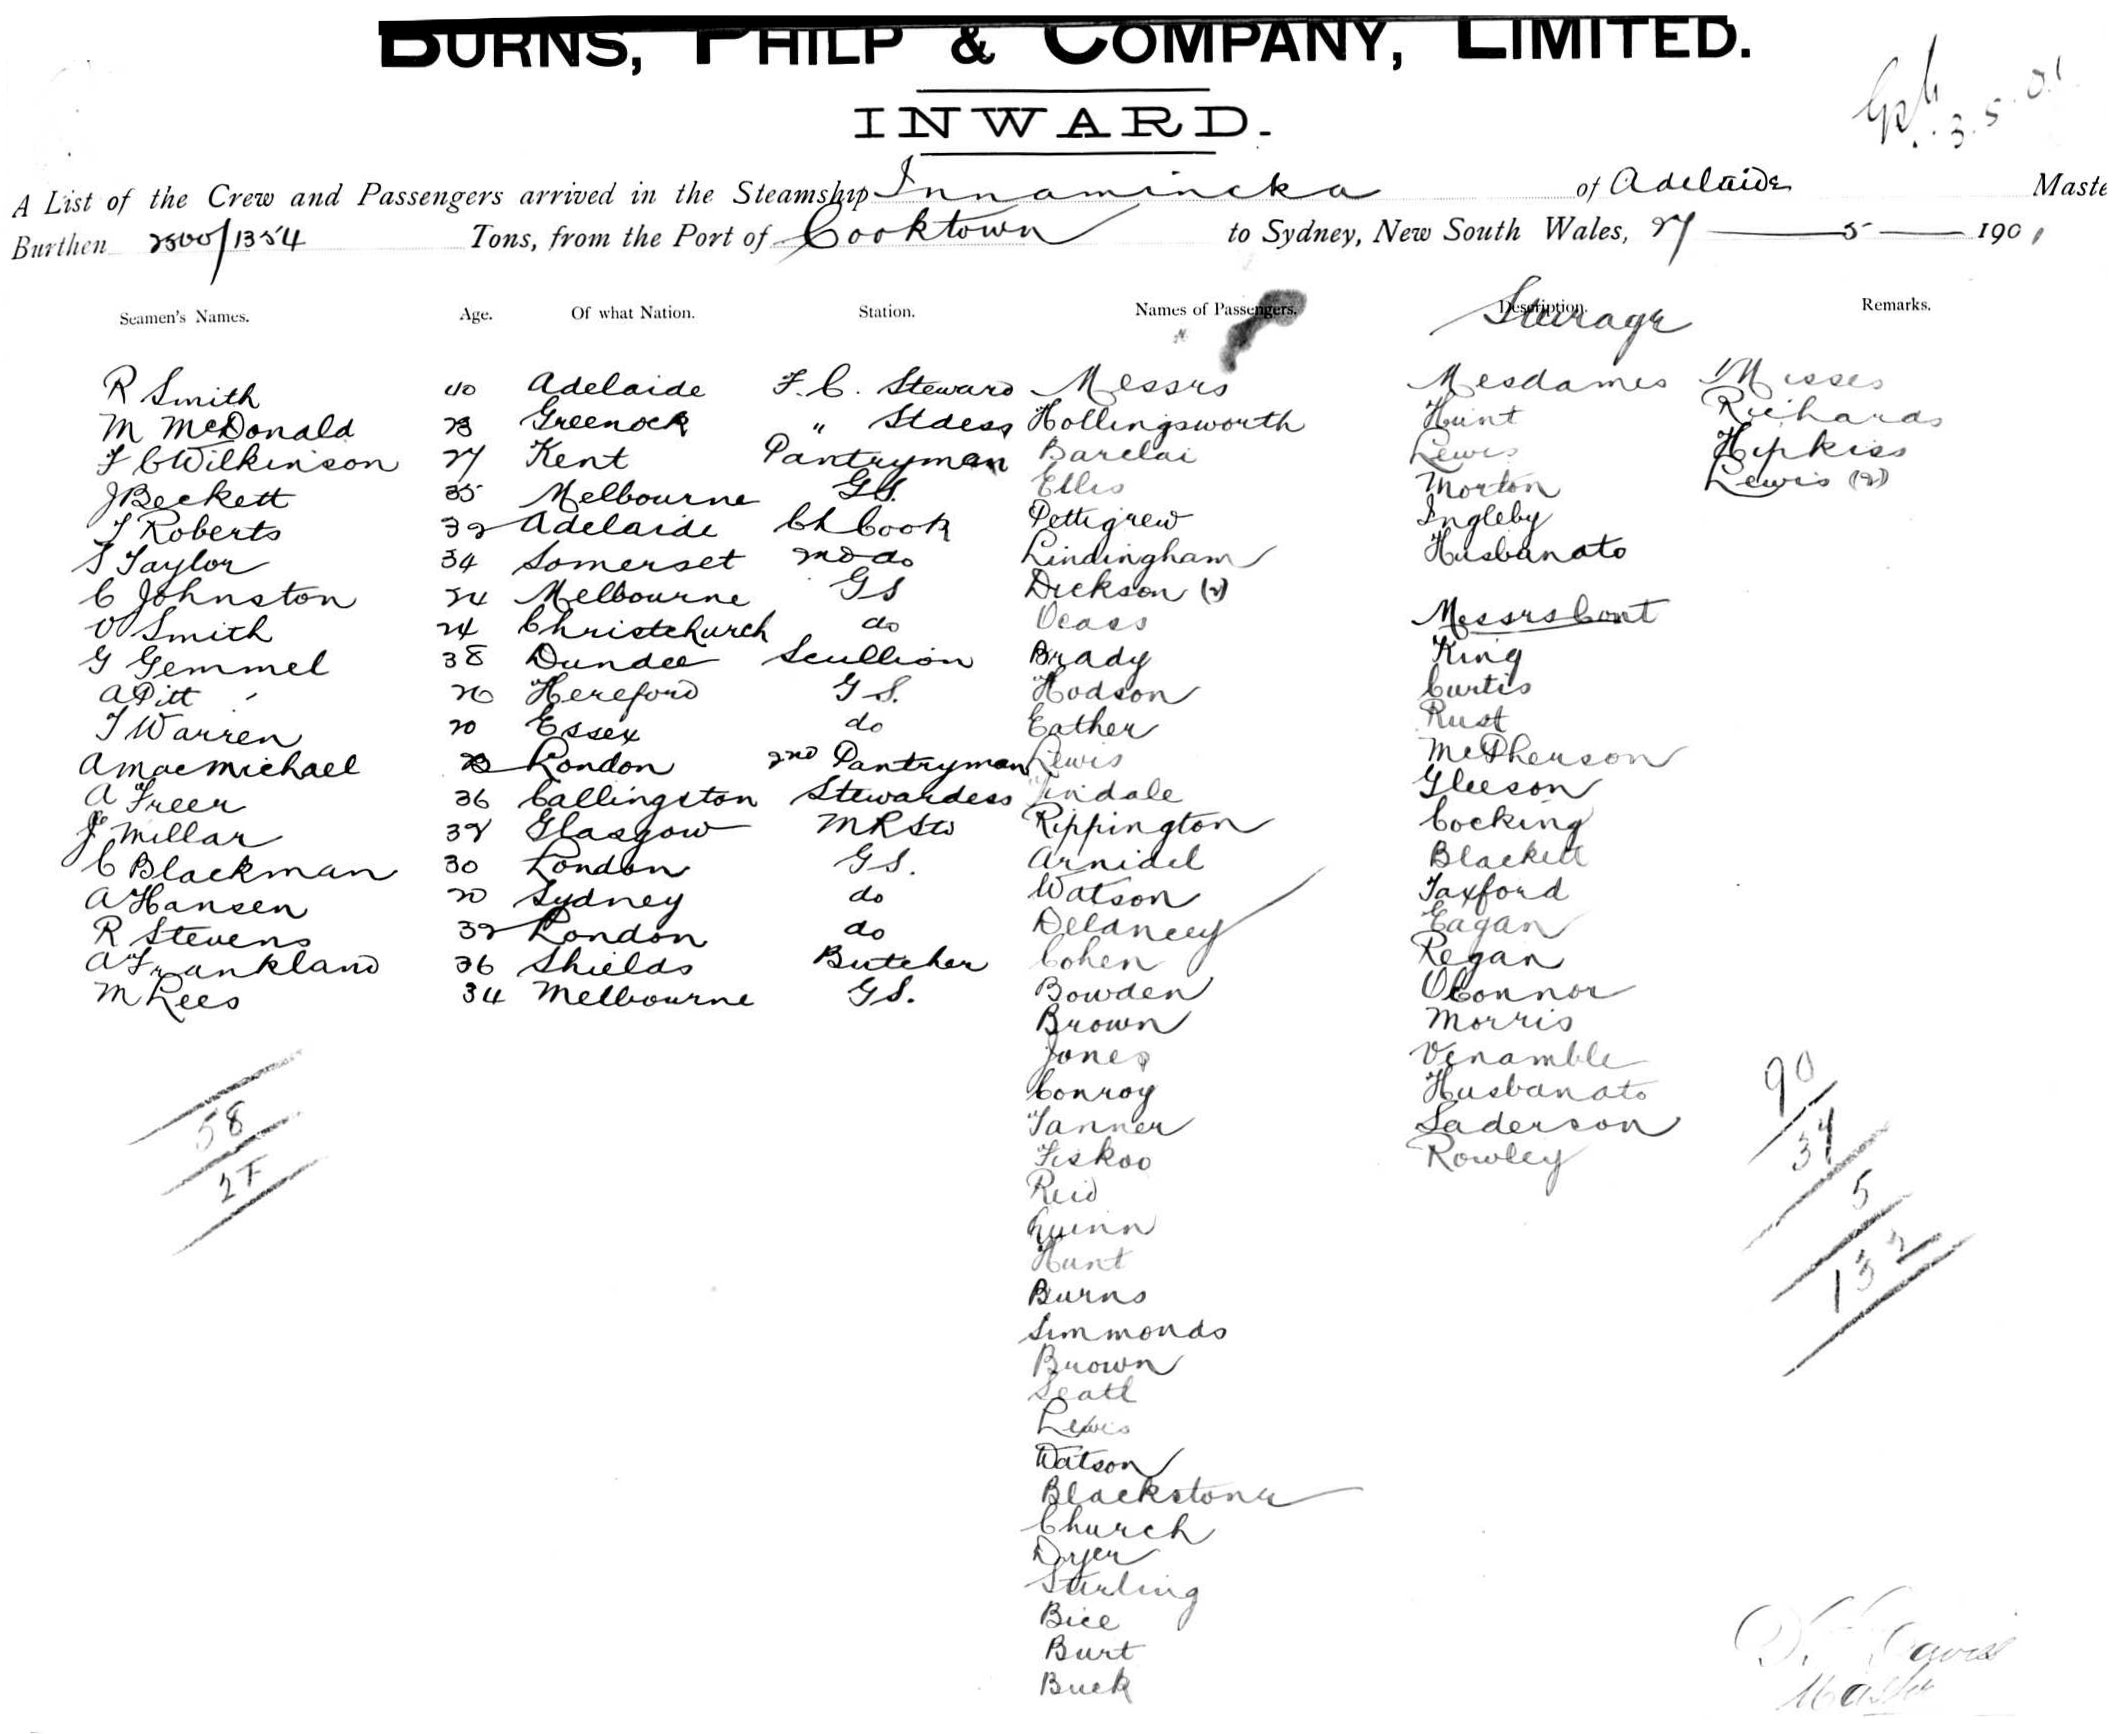 BURNS, PHILP & COMPANY, LIMITED.
INWARD.
3.5.01
A List of the Crew and Passengers arrived in the Steamship Innamincka of Adelaide Maste
Burthen 2500/1354 Tons, from the Port of Cooktown to Sydney, New South Wales, 27 5 1901
Seamen's Names. Age. Of what Nation. Station. Names of Passengers. Description. Remarks.
Stearage
R Smith 40 Adelaide F.C. Steward Messrs Mesdames Misses
M McDonald 23 Greenock " Stdess Hollingsworth Hunt Richards
F C Wilkinson 27 Kent Pantryman Barclai Lewis Hipkiss
J Beckett 35 Melbourne G.S. Ellis Morton Lewis (2)
F Roberts 32 Adelaide Ch Cook Pettigrew Ingleby
S Taylor 34 Somerset 2nd do Lindingham Husbanato
C Johnston 24 Melbourne GS Dickson (2)
O Smith 24 Christchurch do Veass Messrs Cont
G Gemmel 38 Dundee Scullion Brady King
A Pitt 26 Hereford G.S. Hodson Curtis
T Warren 20 Essex do Eather Rust
A MacMichael 23 London 2nd Pantryman Lewis McPherson
A Freer 36 Callingston Stewardess Tindale Gleeson
J Millar 38 Glasgow M R Std Rippington Cocking
C Blackman 30 London G.S. Arnidel Blackett
A Hansen 20 Sydney do Watson Taxford
R Stevens 32 London do Delancey Eagan
A Frankland 36 Shields Butcher Cohen Regan
M Lees 34 Melbourne G.S. Bowden OConnor
Brown Morris
Jones Venamble
Conroy Husbanato
Tanner Saderson
Fiskoo Rowley
Reid
Quinn
Hunt
Burns
Simmonds
Brown
Seatl
Lewis
Watson
Blackstone
Church
Dryer
Stirling
Bice
Burt
Buck
58
27
90
37
5
132
Davis
Master